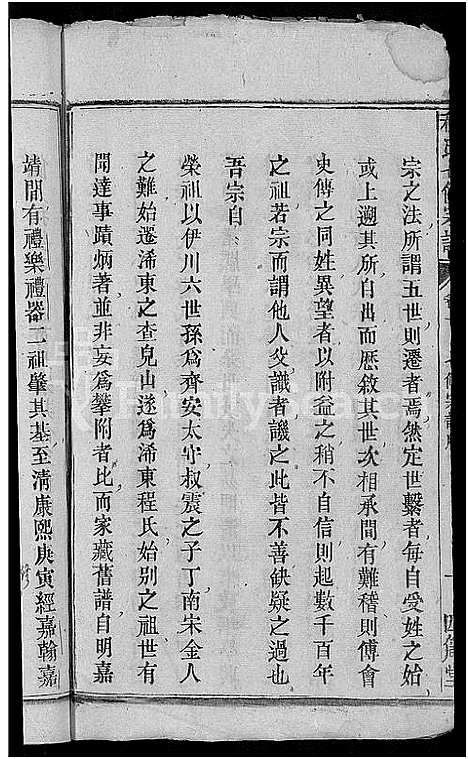 宗之法所謂五世則遷者焉然定世繫者每自受姓之始
或上遡其所自出而歷敘其世次相承間有難稽則傅會
史傳之同姓異望者以附益之稍不自信則起數千百年
之祖若宗而謂他人父識者譏之此皆不善缺疑之過也
吾宗自
榮祖以伊川六世孫爲齊安太守叔震之子丁南宋金人
之難始遷浠東之查兒山遂爲浠東程氏始别之祖世有
聞達事蹟炳著並非妄爲攀附者比而家藏舊譜自明嘉
靖間有禮樂禮器二祖肇其基至清康熙庚寅經嘉翰嘉
FamilySearch